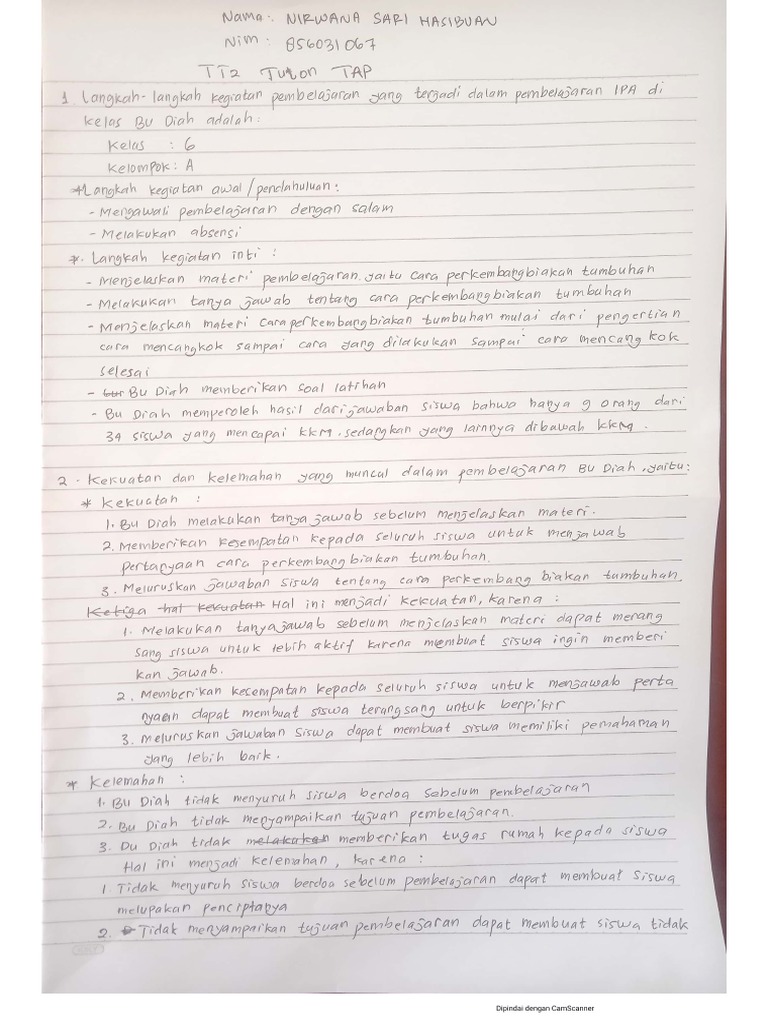 Nama : NIRWANA SARI HASIBUAN
Nim : 856031067
TT2 Tuton TAP
1 Langkah-langkah kegiatan pembelajaran yang terjadi dalam pembelajaran IPA di
kelas Bu Diah adalah:
Kelas : 6
Kelompok : A
*Langkah kegiatan awal/pendahuluan:
- Mengawali pembelajaran dengan salam
- Melakukan absensi
*. Langkah kegiatan inti :
- Menjelaskan materi pembelajaran yaitu cara perkembangbiakan tumbuhan
- Melakukan tanya jawab tentang cara perkembangbiakan tumbuhan
- Menjelaskan materi cara perkembangbiakan tumbuhan mulai dari pengertian
cara mencangkok sampai cara yang dilakukan sampai cara mencangkok
selesai
- Bu Diah memberikan soal latihan
- Bu Diah memperoleh hasil dari jawaban siswa bahwa hanya 9 orang dari
34 siswa yang mencapai KKM. sedangkan yang lainnya dibawah KKM.
2. Kekuatan dan kelemahan yang muncul dalam pembelajaran Bu Diah, yaitu:
* Kekuatan :
1. Bu Diah melakukan tanya jawab sebelum menjelaskan materi.
2. Memberikan kesempatan kepada seluruh siswa untuk menjawab
pertanyaan cara perkembangbiakan tumbuhan.
3. Meluruskan jawaban siswa tentang cara perkembangbiakan tumbuhan.
Ketiga hal kekuatan Hal ini menjadi kekuatan, karena :
1. Melakukan tanya jawab sebelum menjelaskan materi dapat merang
sang siswa untuk lebih aktif karena membuat siswa ingin memberi
kan jawab.
2. Memberikan kesempatan kepada seluruh siswa untuk menjawab perta
nyaan dapat membuat siswa terangsang untuk berpikir
3. Meluruskan jawaban siswa dapat membuat siswa memiliki pemahaman
yang lebih baik.
* Kelemahan :
1. Bu Diah tidak menyuruh siswa berdoa sebelum pembelajaran
2. Bu Diah tidak menyampaikan tujuan pembelajaran.
3. Du Diah tidak melakukan memberikan tugas rumah kepada siswa
Hal ini menjadi kelemahan, karena :
1. Tidak menyuruh siswa berdoa sebelum pembelajaran dapat membuat siswa
melupakan penciptanya
2. Tidak menyampaikan tujuan pembelajaran dapat membuat siswa tidak
Dipindai dengan CamScanner